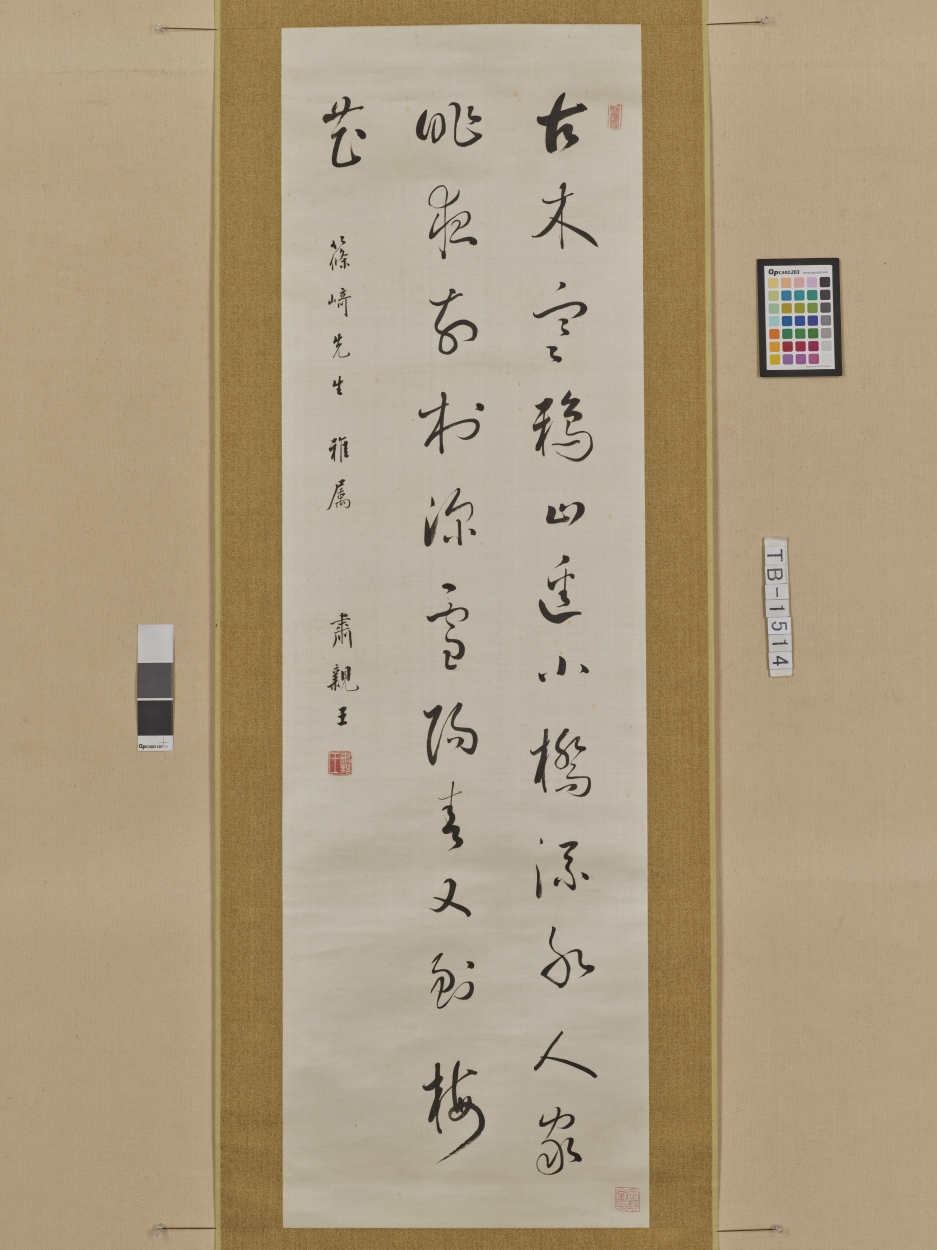 古木寒鴉山逕小橋流水人家
昨夜前村深雪陽春又到梅
花
篠崎先生 雅属 肅親王
QpCARD 203
TB-1514
QpCARD 101